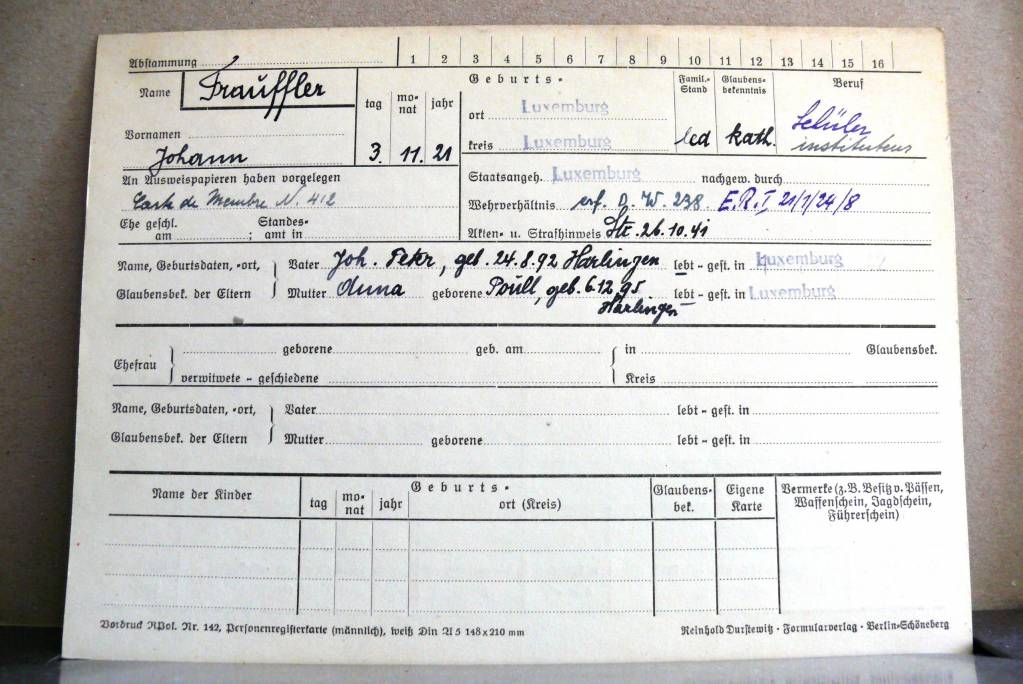 Abstammung 1 2 3 4 5 6 7 8 9 10 11 12 13 14 15 16
Name Frauffler
tag mo-nat jahr
Geburts-
Famil.-Stand
Glaubens-bekenntnis
Beruf
ort Luxemburg
Vornamen Johann
3. 11. 21
kreis Luxemburg
led kath.
Schüler
instituteur
An Ausweispapieren haben vorgelegen
Carte de Membre N. 412
Staatsangeh. Luxemburg nachgew. durch
Wehrverhältnis erf. D. W. 238. E.R. I 21/1/24/8
Ehe geschl. am ; Standes-amt in
Akten- u. Strafhinweis Str. 26.10.41
Name, Geburtsdaten, -ort, Vater Joh. Peter, geb. 24.8.92 Harlingen lebt - gest. in Luxemburg
Glaubensbek. der Eltern Mutter Anna geborene Poull, geb. 6.12.95 lebt - gest. in Luxemburg
Harlingen
Ehefrau geborene geb. am in Glaubensbek.
verwitwete - geschiedene Kreis
Name, Geburtsdaten, -ort, Vater lebt - gest. in
Glaubensbek. der Eltern Mutter geborene lebt - gest. in
Name der Kinder
Geburts-
tag mo-nat jahr ort (Kreis)
Glaubens-bek.
Eigene Karte
Vermerke (z.B. Besitz v. Pässen,
Waffenschein, Jagdschein,
Führerschein)
Vordruck RPol. Nr. 142, Personenregisterkarte (männlich), weiß Din A 5 148 x 210 mm
Reinhold Durstewitz · Formularverlag · Berlin-Schöneberg